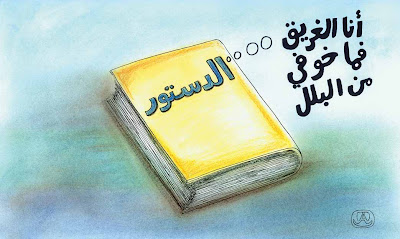 أنا الغريق
فما خوفي
من البلل
الدستور